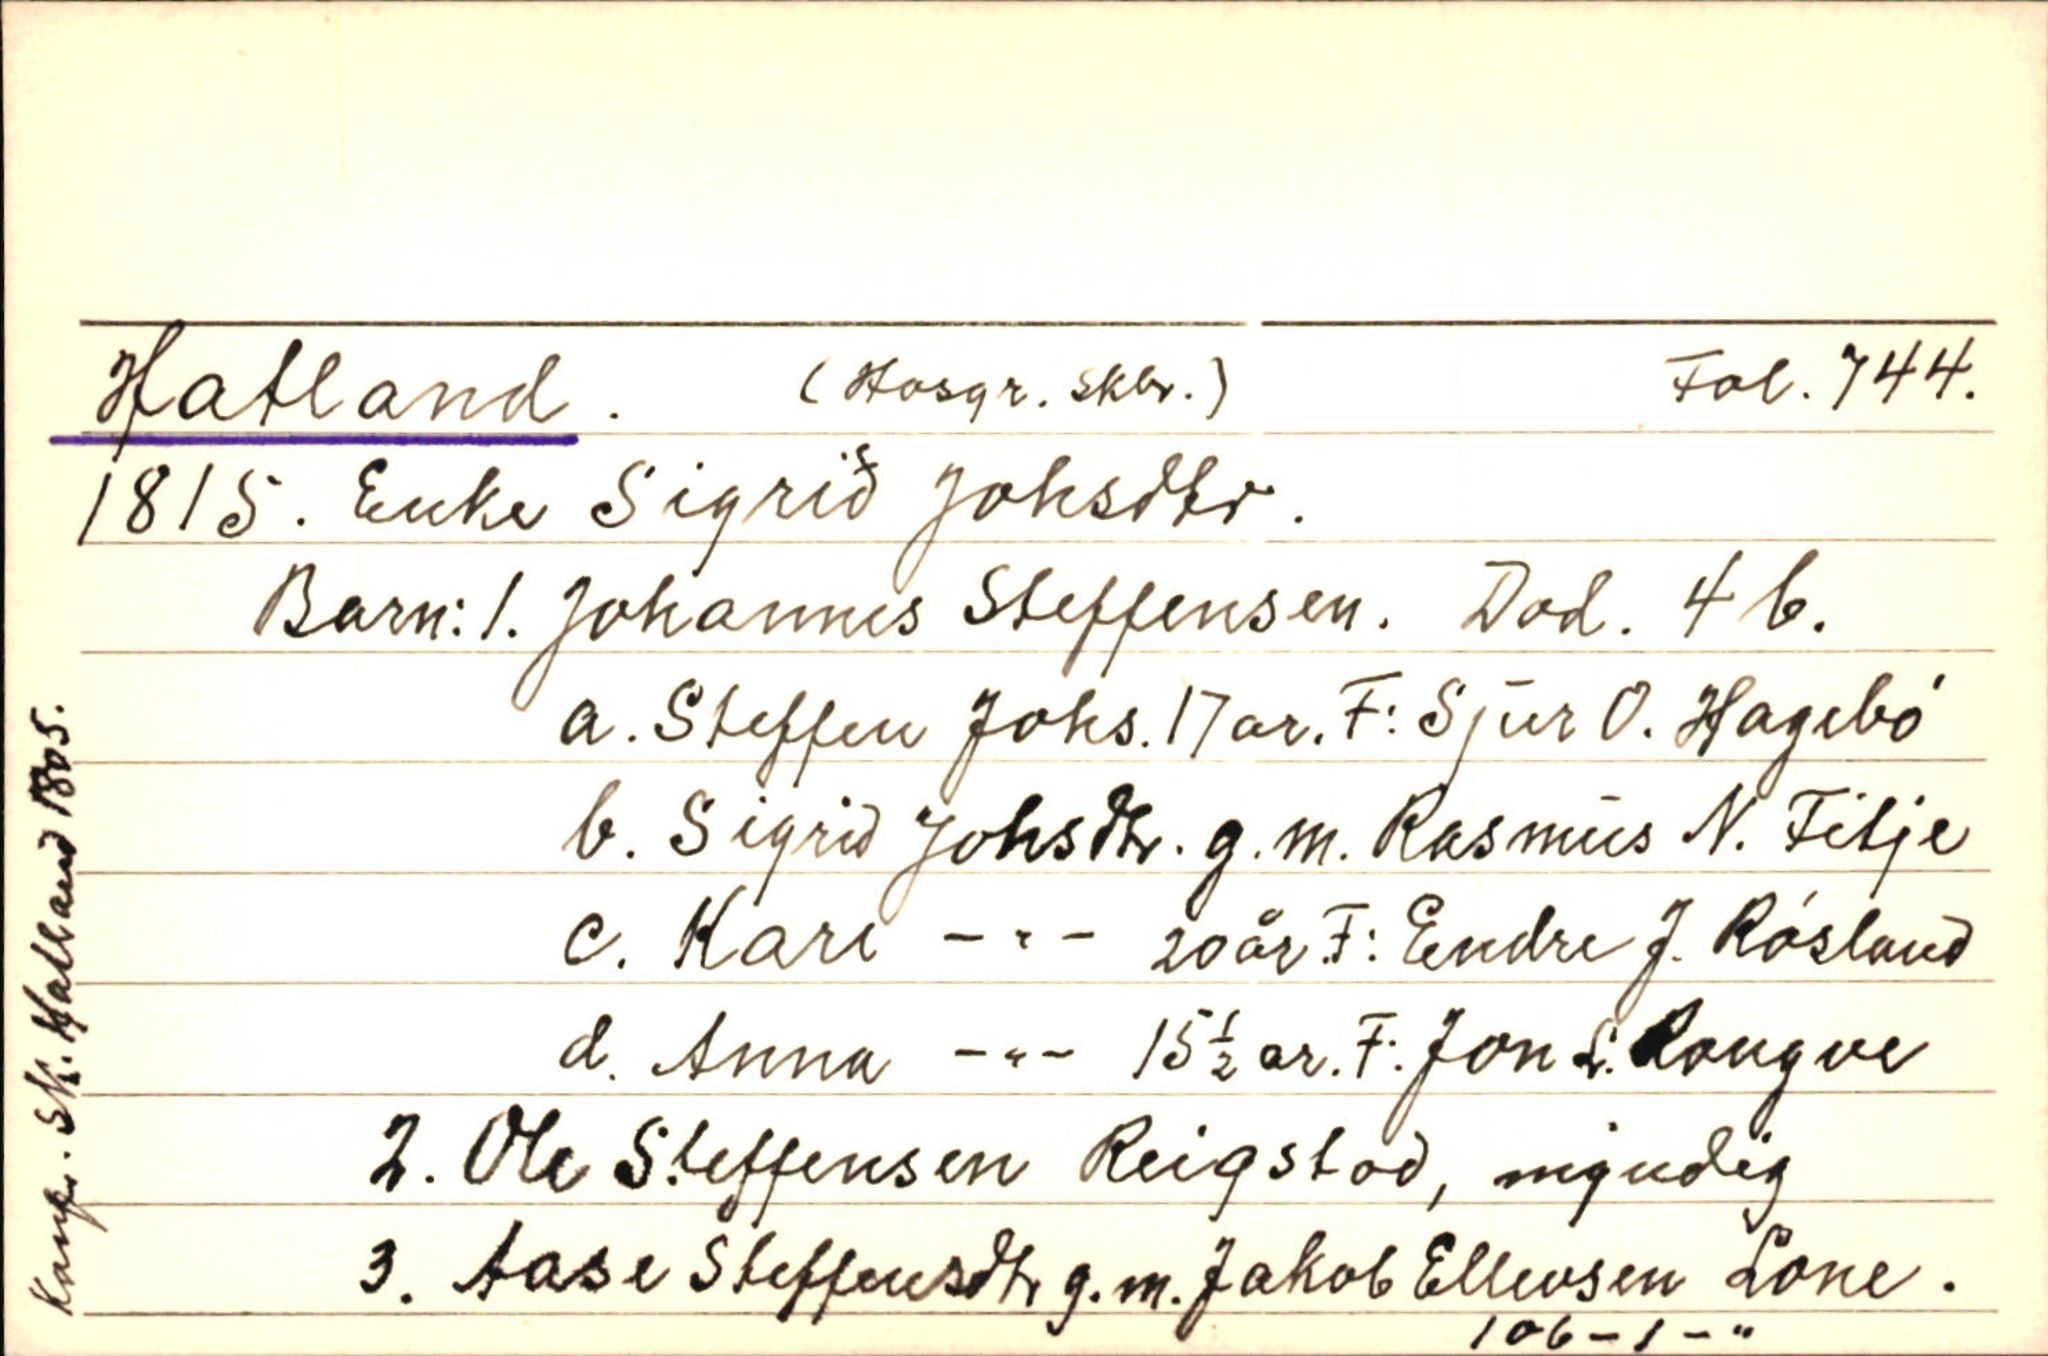 Hatland. (Hosgr. Skbr.) Fol. 744.
1815. Enke Sigrid Johsdtr.
Barn: 1. Johannes Steffensen. Død. 4 b.
a. Steffen Johs. 17 år. F: Sjur O. Hagebø
b. Sigrid Johsdtr. g.m. Rasmus N. Fitje
c. Kari -"- 20 år F: Endre J. Røsland
d. Anna -"- 15½ år. F: Jon L. Rongve
2. Ole Steffensen Reigstad, myndig
3. Aase Steffensdtr g.m. Jakob Ellevsen Lone.
106-1-"
Konf. Sk. Hatland 1805.